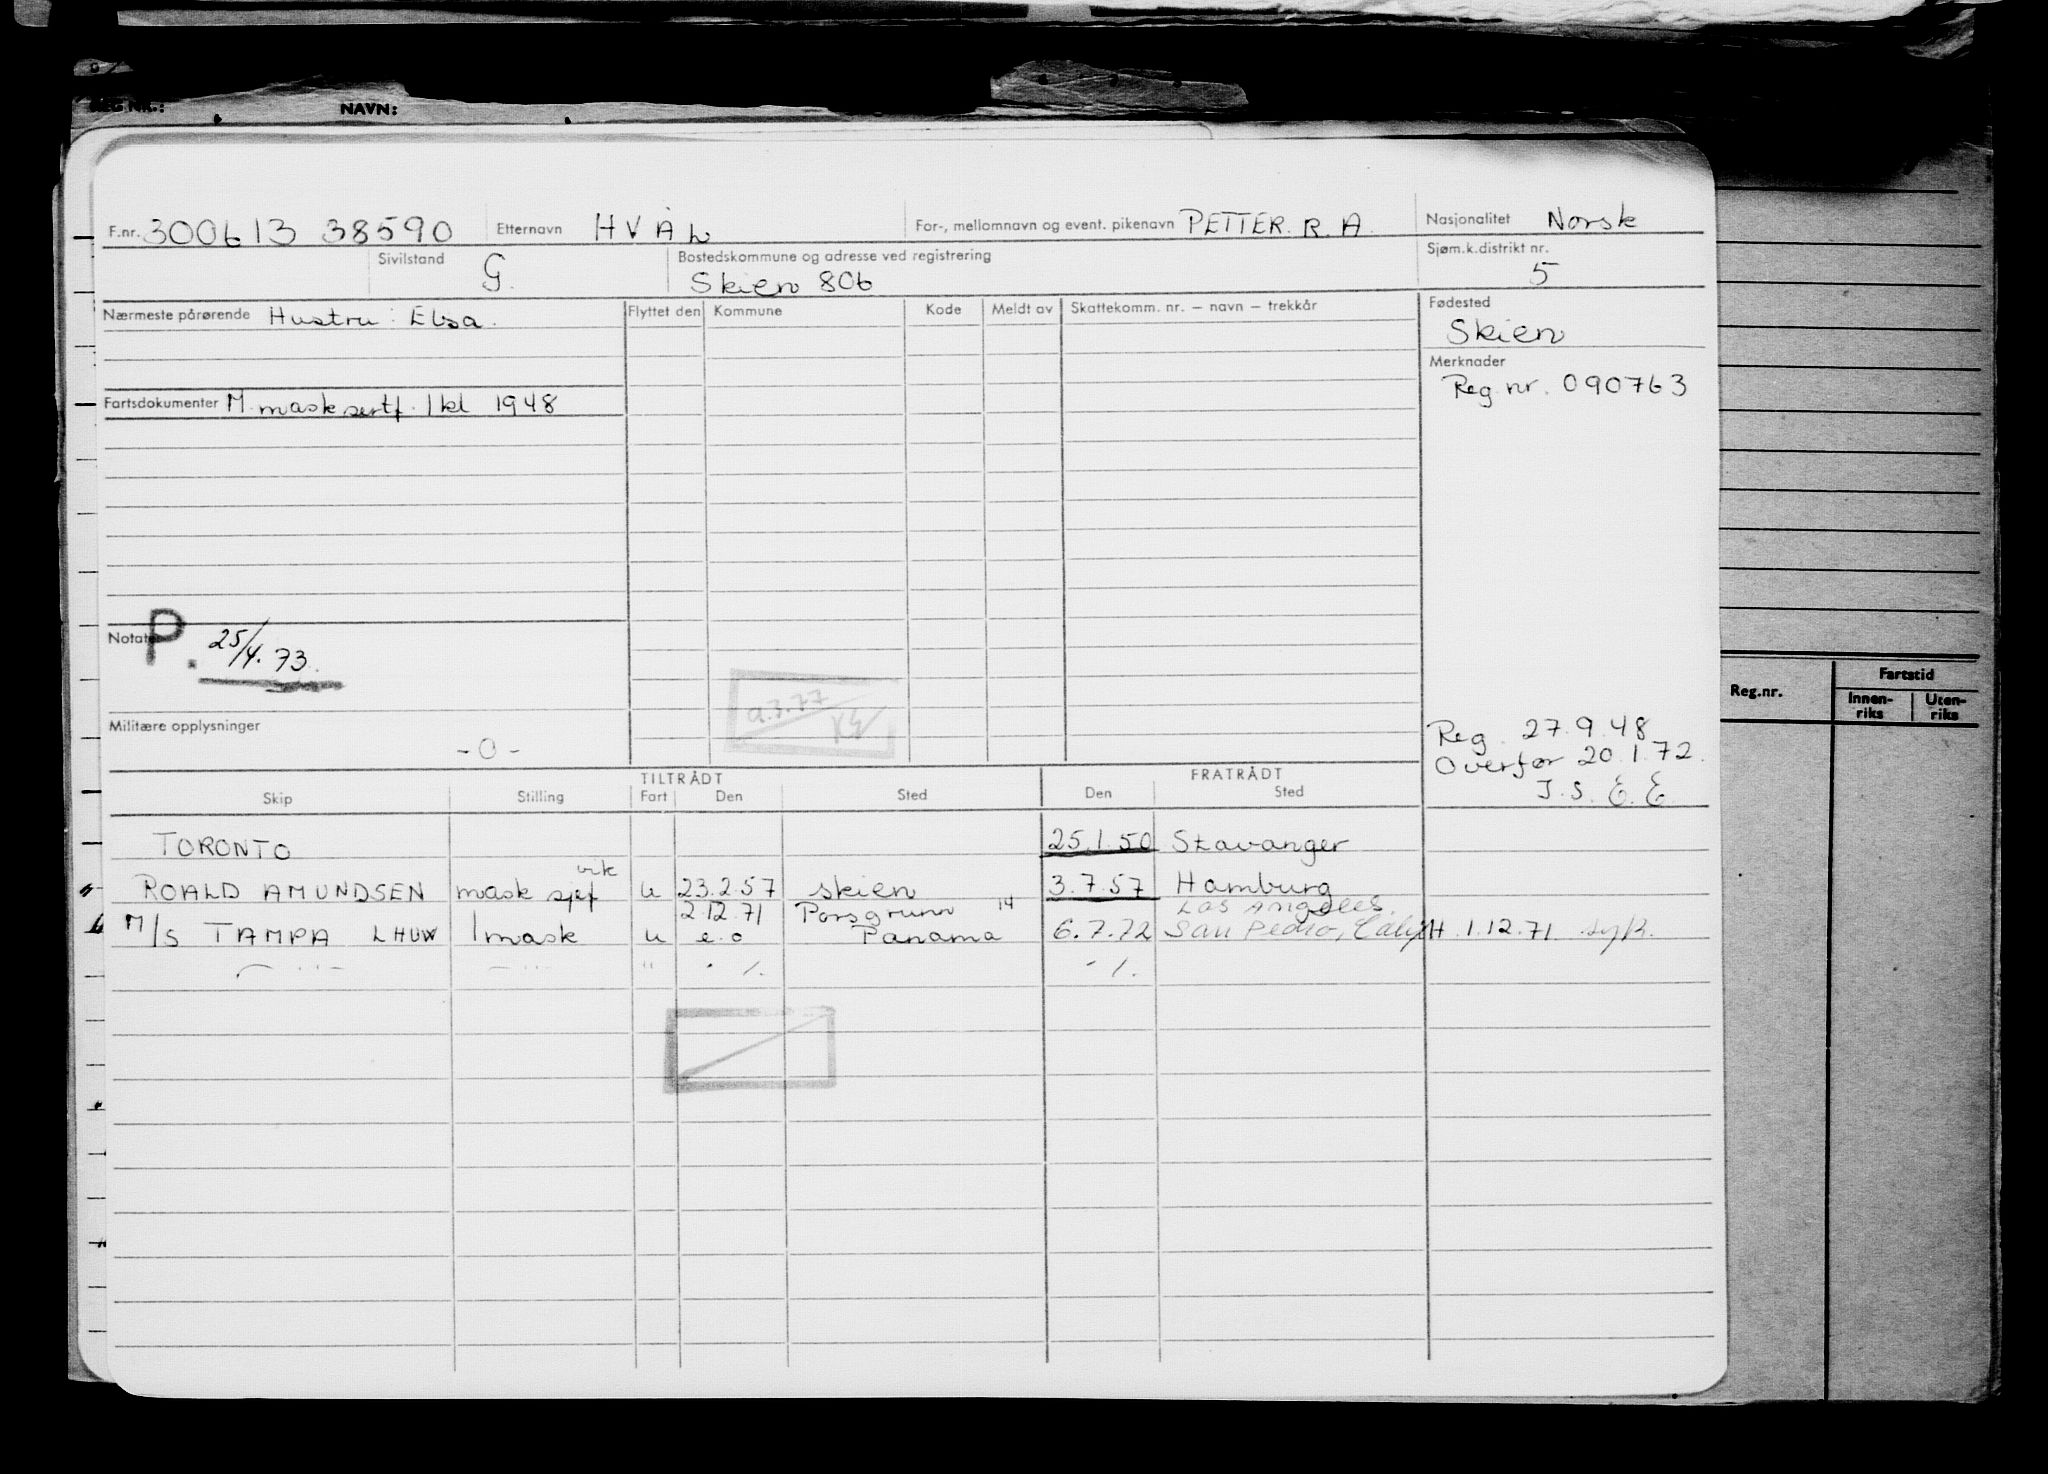 REG NR.: NAVN:
F.nr. 300613 38590 Etternavn HVÅL For-, mellomnavn og event. pikenavn PETTER. R. A. Nasjonalitet Norsk
Sivilstand G. Bostedskommune og adresse ved registrering Skien 806 Sjøm.k.distrikt nr. 5
Nærmeste pårørende Hustru: Elsa. Flyttet den Kommune Kode Meldt av Skattekomm. nr. – navn – trekkår Fødested
Skien
Merknader
Reg. nr. 090763
Fartsdokumenter M. mask sertf. 1 kl 1948
Notater P. 25/4. 73.
9.3.77
Militære opplysninger
- 0 -
Reg. 27.9.48
Overfør 20.1.72.
J. S. E. E
TILTRÅDT FRATRÅDT
Skip Stilling Fart Den Sted Den Sted
TORONTO 25.1.50 Stavanger
vik
ROALD AMUNDSEN mask sjef u 23.2.57 Skien 3.7.57 Hamburg
2.12.71 Porsgrunn 14 Los Angeles.
M/S TAMPA LHUW 1 mask u e.o Panama 6.7.72 San Pedro, Calif H. 1.12.71 syk.
— " — — " — " ./. ./.
Reg.nr. Fartstid
Innen-riks Uten-riks